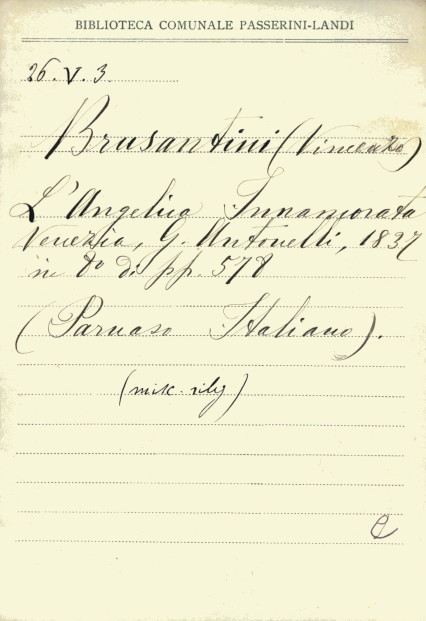 BIBLIOTECA COMUNALE PASSERINI-LANDI
26.V.3.
Brusantini (Vincenzo)
L'Angelica Innamorata
Venezia, G. Antonelli, 1837
in 8º di pp. 578
(Parnaso Italiano).
(misc. rileg)